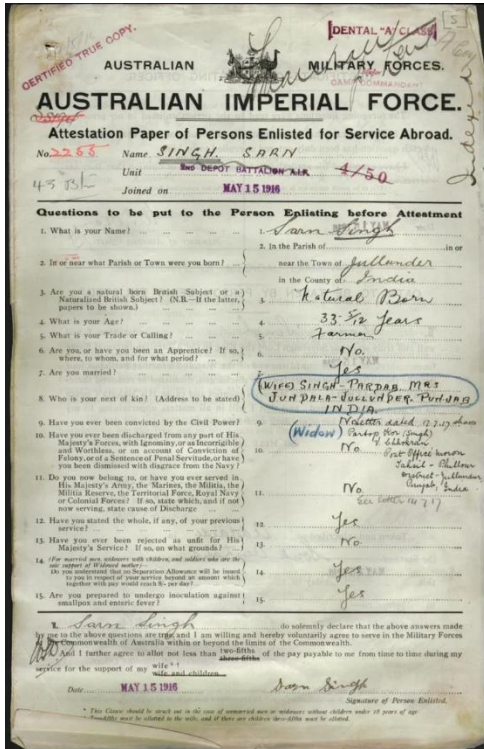 [DENTAL "A" CLASS]
5
CERTIFIED TRUE COPY.
AUSTRALIAN MILITARY FORCES.
CAMP COMMANDANT
Indexed
AUSTRALIAN IMPERIAL FORCE.
Attestation Paper of Persons Enlisted for Service Abroad.
No. 2255 Name SINGH. SARN
Unit 2ND DEPOT BATTALION A.I.F. 4/50
43 Bn
Joined on MAY 15 1916
Questions to be put to the Person Enlisting before Attestment
1. What is your Name? 1. Sarn Singh
2. In the Parish of in or
2. In or near what Parish or Town were you born? near the Town of Jullunder
in the County of India
3. Are you a natural born British Subject or a
Naturalized British Subject? (N.B.—If the latter,
papers to be shown.) 3. Natural Born
4. What is your Age? 4. 33 5/12 Years
5. What is your Trade or Calling? 5. Farmer
6. Are you, or have you been an Apprentice? If so,
where, to whom, and for what period? 6. No.
7. Are you married? 7. Yes
8. Who is your next of kin? (Address to be stated) 8. (WIFE) SINGH-PARDAB. MRS
JUNDALA-JULLUNDER. PUNJAB
INDIA.
9. Have you ever been convicted by the Civil Power? 9. No letter dated 17.7.17
(Widow) Partap Kor (Singh)
10. Have you ever been discharged from any part of His
Majesty's Forces, with Ignominy, or as Incorrigible
and Worthless, or on account of Conviction of
Felony, or of a Sentence of Penal Servitude, or have
you been dismissed with disgrace from the Navy? 10. No.
Post Office
District-Jullundur
Punjab, India
11. Do you now belong to, or have you ever served in
His Majesty's Army, the Marines, the Militia, the
Militia Reserve, the Territorial Force, Royal Navy
or Colonial Forces? If so, state which, and if not
now serving, state cause of Discharge 11. No.
See letter 14.7.17
12. Have you stated the whole, if any, of your previous
service? 12. Yes
13. Have you ever been rejected as unfit for His
Majesty's Service? If so, on what grounds? 13. No.
14. (For married men, widowers with children, and soldiers who are the
sole support of Widowed mother)—
Do you understand that no Separation Allowance will be issued
to you in respect of your service beyond an amount which
together with pay would reach 8/- per day? 14. Yes
15. Are you prepared to undergo inoculation against
smallpox and enteric fever? 15. Yes
I, Sarn Singh do solemnly declare that the above answers made
by me to the above questions are true, and I am willing and hereby voluntarily agree to serve in the Military Forces
of the Commonwealth of Australia within or beyond the limits of the Commonwealth.
And I further agree to allot not less than two-fifths
three-fifths of the pay payable to me from time to time during my
service for the support of my wife *†
wife and children
Date MAY 15 1916 Sarn Singh
Signature of Person Enlisted.
* This Clause should be struck out in the case of unmarried men or widowers without children under 18 years of age